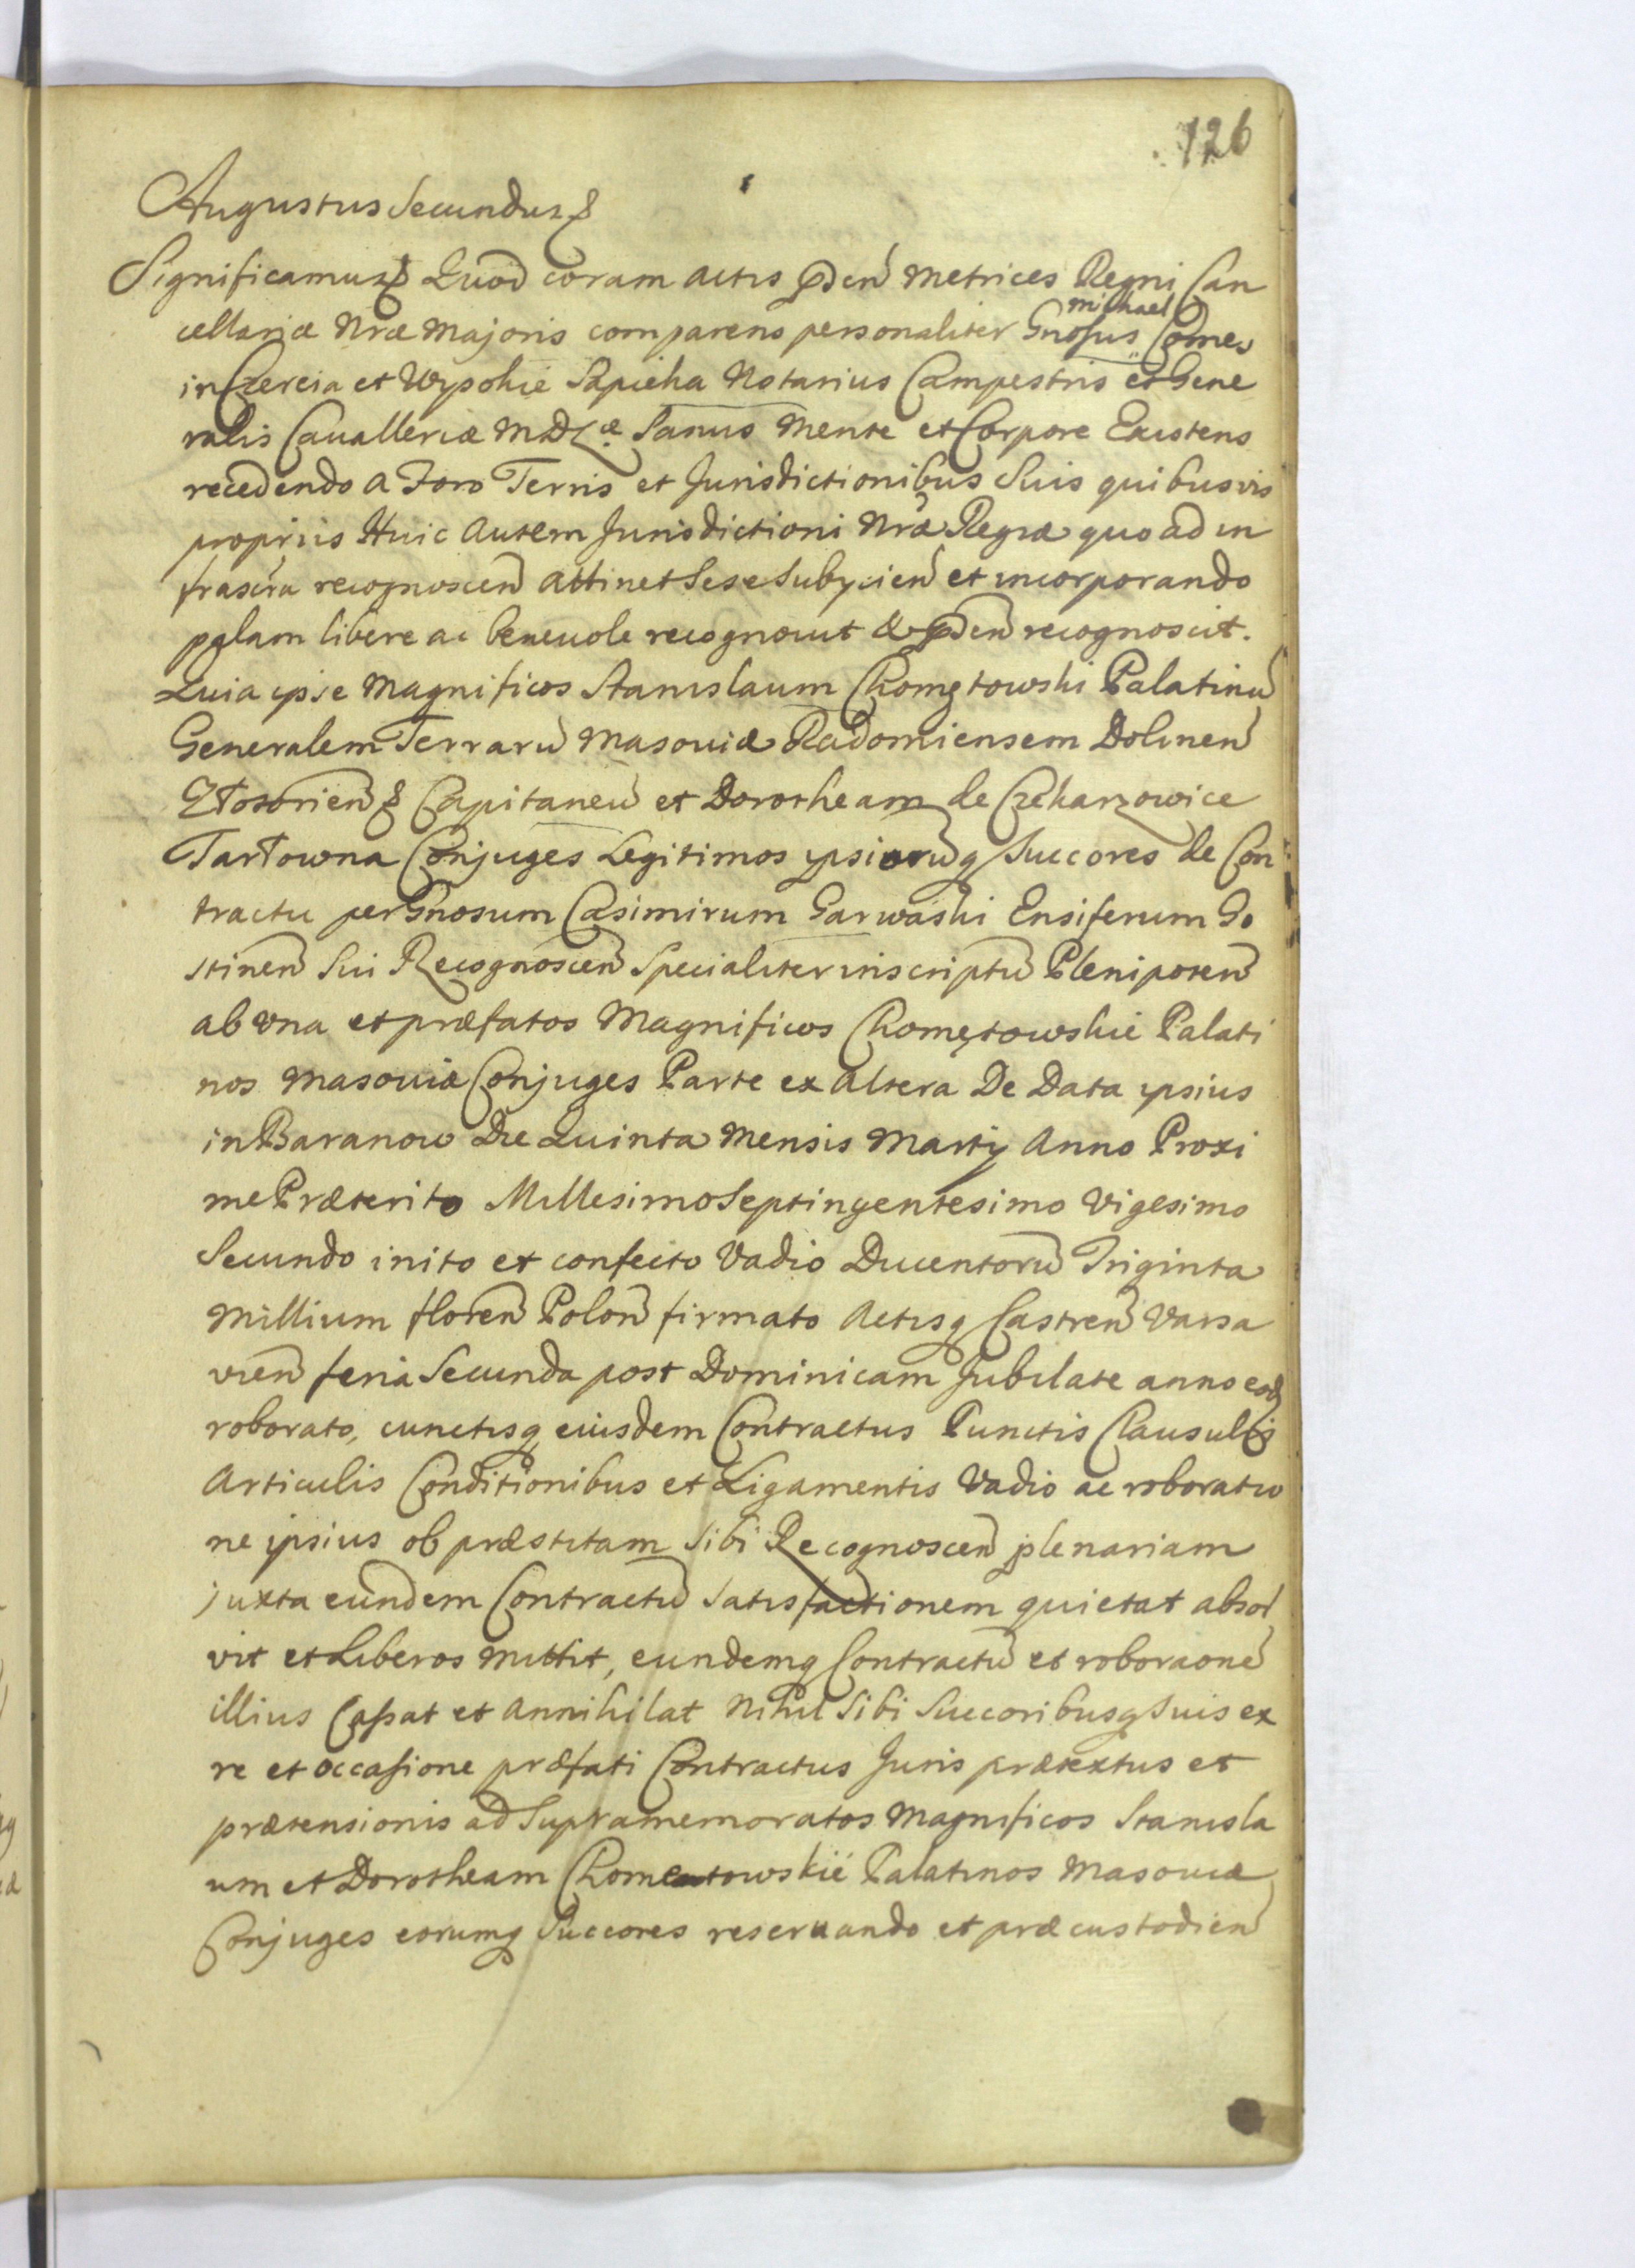 126
Augustus Secundus &
Significamus & Quod coram actis pnden̄ Metrices Regni Can
cellariæ Nræ Majoris comparens personaliter Gnosus Michael Comes
in Czereia et Wysokie Sapieha Notarius Campestris et Gene
ralis Cavalleriæ MDLæ. Sanus Mente et Corpore Existens
recedendo a Foro Terris et Jurisdictionibus Suis quibusvis
proprijs Huic Autem Jurisdictioni Nræ Regiæ quo ad in
frascrā recognoscen̄ attinet Sese Subijcien̄ et incorporando
palam libere ac benevole recognovit & pnden̄ recognoscit.
Quia ipse Magnificos Stanislaum Chomętowski Palatinū
Generalem Terrarū Masoviæ Radomiensem Dolinen̄
Złotorien̄ & Capitaneū et Dorotheam de Czekarzowice
Tarłowna Conjuges Legitimos ipsiorūq Succores de Con
tractu per Gnosum Casimirum Garwaski Ensiferum Go
stinen̄ Sui Recognoscen̄ Specialiter inscriptū Plenipoten̄
ab una et præfatos Magnificos Chomętowskie Palati
nos Masoviæ Conjuges Parte ex altera De Data ipsius
in Baranow Die Quinta Mensis Martij Anno Proxi
me Præterito Millesimo Septingentesimo Vigesimo
Secundo inito et confecto Vadio Ducentorū Triginta
Millium floren̄ Polon̄ firmato Actisq Castren̄ Varsa
vien̄ feria Secunda post Dominicam Jubilate anno eodē
roborato, cunctisq eiusdem Contractus Punctis Clausulis
Articulis Conditionibus et Ligamentis Vadio ac roboratio
ne ipsius ob præstitam Sibi Recognoscen̄ plenariam
juxta eundem Contractū Satisfactionem quietat absol
vit et Liberos Mittit, eundemq Contractū et roboraonē
illius Cassat et Annihilat Nihil Sibi Succoribusq Suis ex
re et occasione præfati Contractus Juris prætextus et
prætensionis ad Supramemoratos Magnificos Stanisla
um et Dorotheam Chomentowskie Palatinos Masoviæ
Conjuges eorumq Succores reservando et præcustodien̄